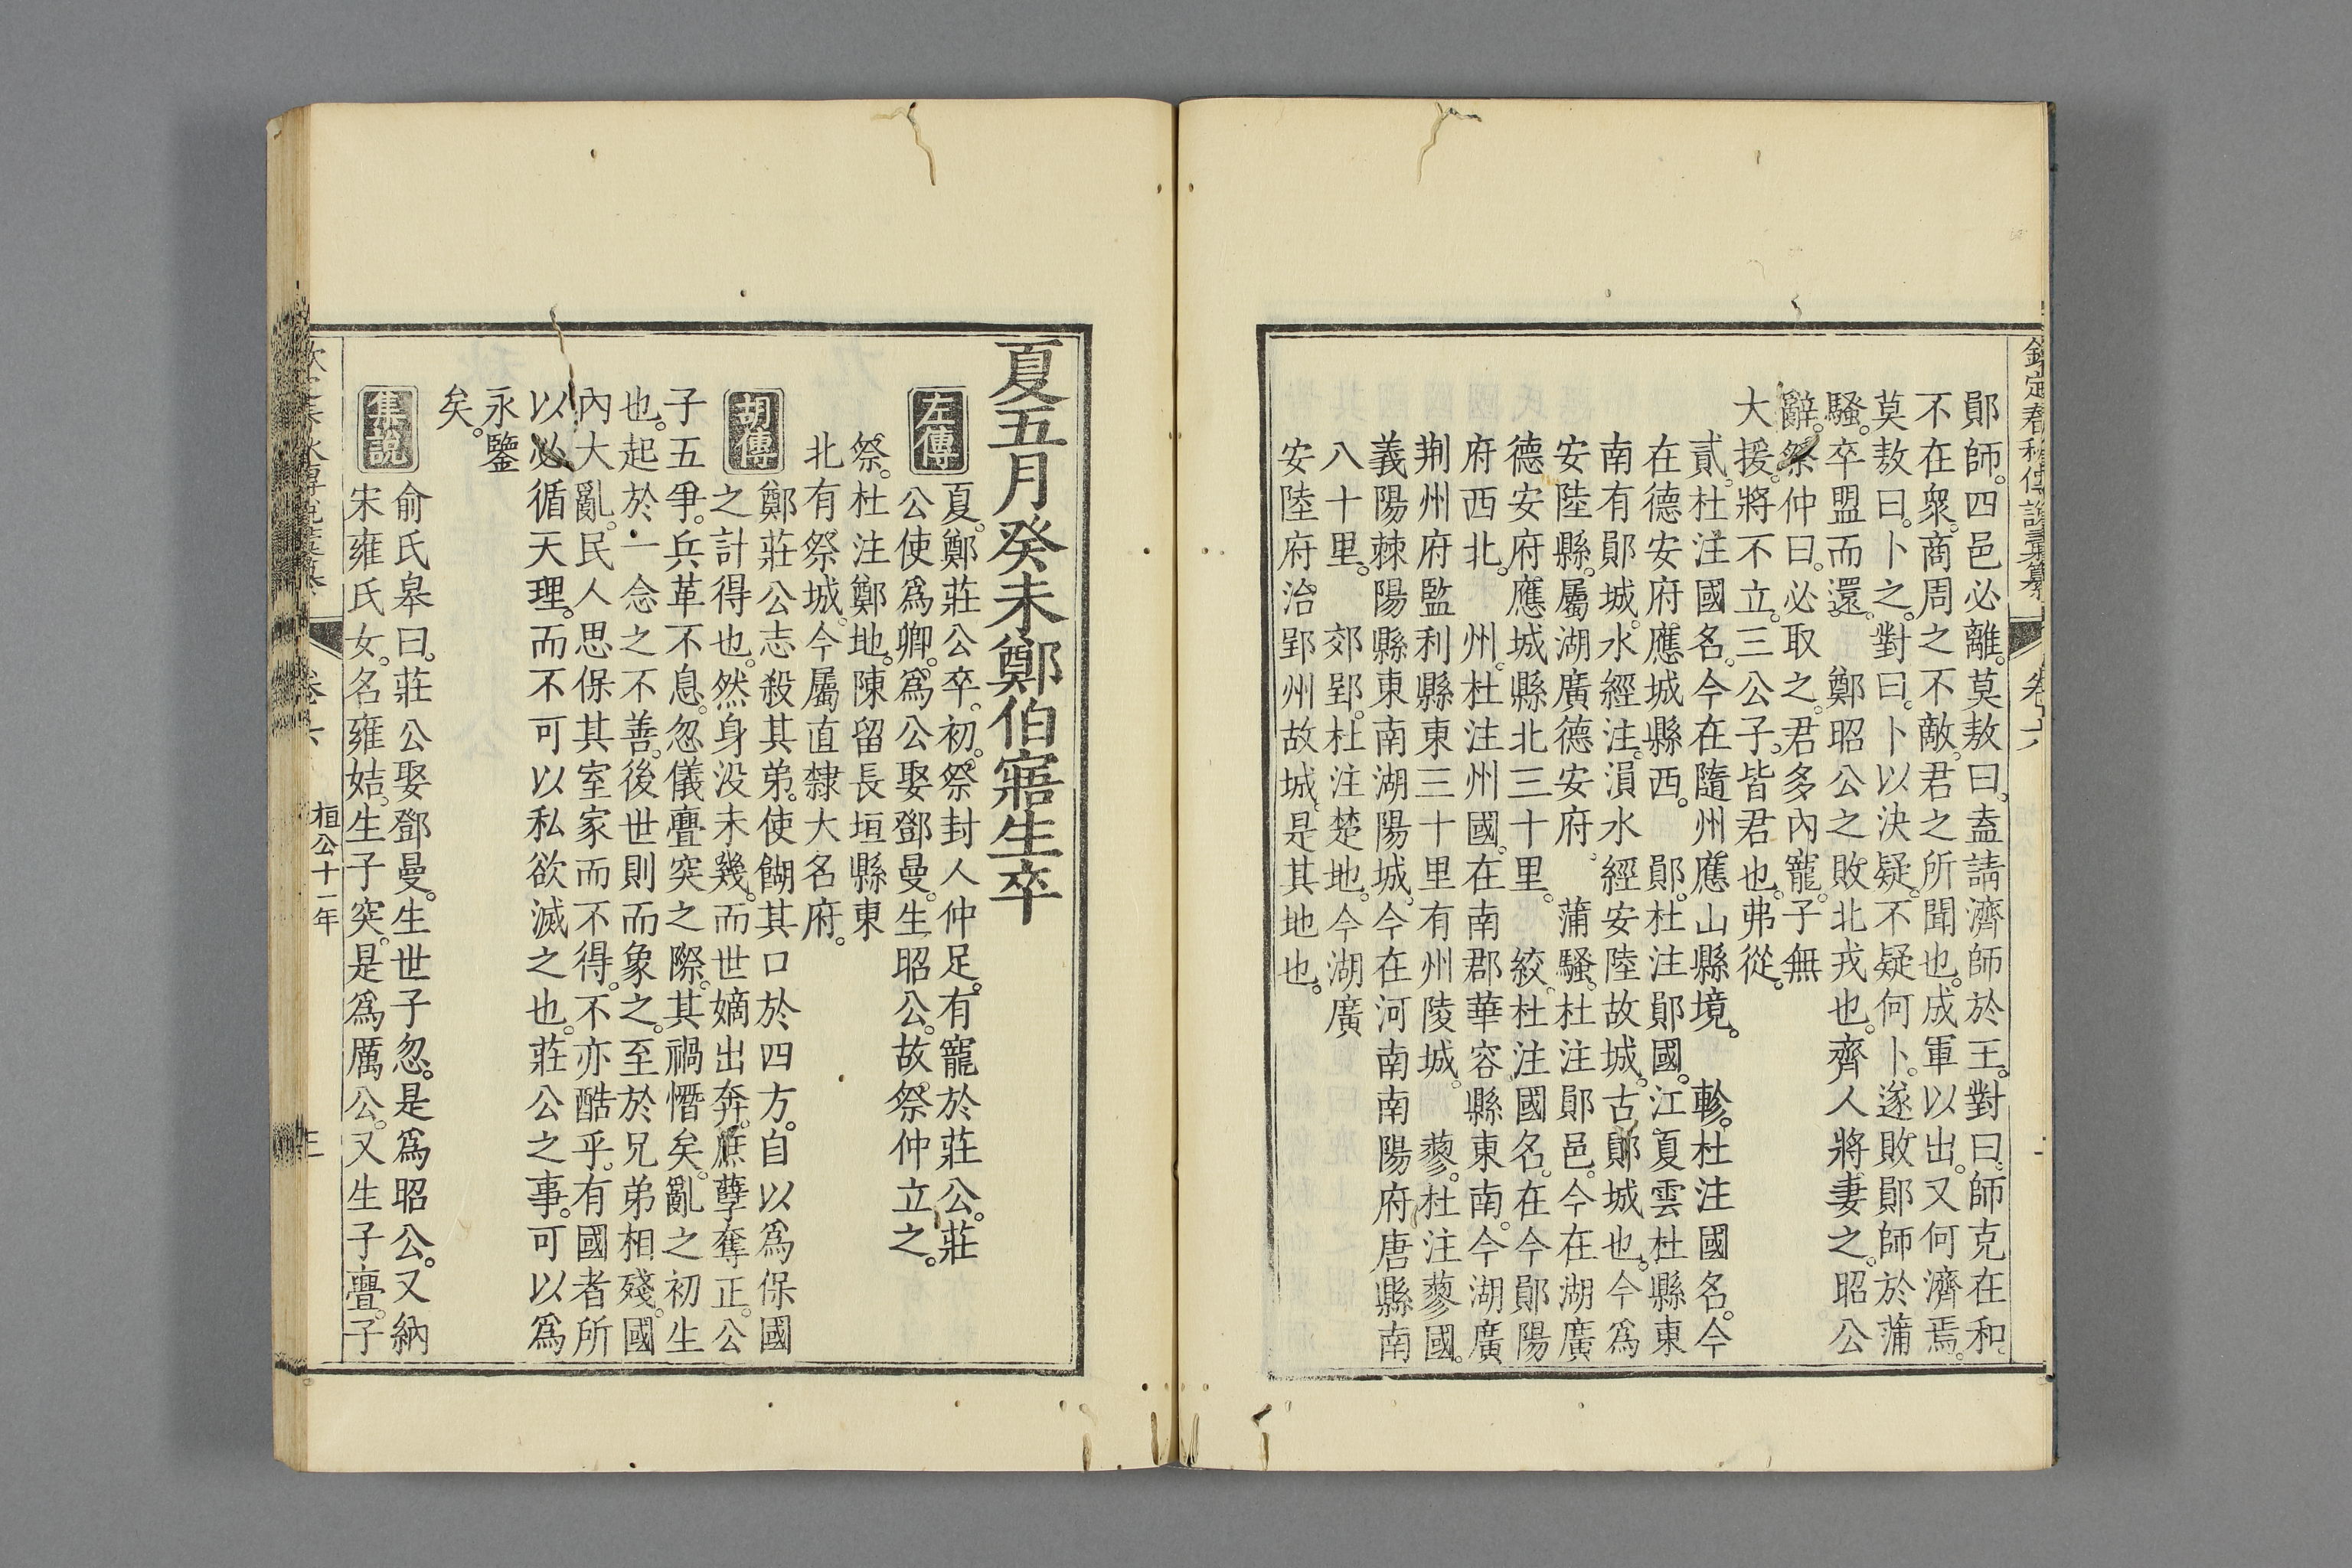 欽定春秋傳說彙纂 卷六
鄖師。四邑必離。莫敖曰。盍請濟師於王。對曰。師克在和。
不在衆。商周之不敵。君之所聞也。成軍以出。又何濟焉。
莫敖曰。卜之。對曰。卜以決疑。不疑何卜。遂敗鄖師於蒲
騷。卒盟而還。 鄭昭公之敗北戎也。齊人將妻之。昭公
辭。祭仲曰。必取之。君多內寵。子無
大援。將不立。三公子。皆君也。弗從。
貳。杜注國名。今在隨州應山縣境。 軫。杜注國名。今
在德安府應城縣西。 鄖。杜注鄖國。江夏雲杜縣東
南有鄖城。水經注。溳水 經安陸故城。古鄖城也。今爲
安陸縣。屬湖廣德安府。 蒲騷。杜注鄖邑。今在湖廣
德安府應城縣北三十里。 絞。杜注國名。在今鄖陽
府西北。 州。杜注州國。在南郡華容縣東南。今湖廣
荆州府監利縣東三十里有州陵城。 蓼。杜注蓼國。
義陽棘陽縣東南湖陽城。今在河南南陽府唐縣南
八十里。 郊郢。杜注楚地。今湖廣
安陸府治郢州故城。是其地也。
夏五月癸未鄭伯寤生卒
左傳
夏。鄭莊公卒。初。祭封人仲足。有寵於莊公。莊
公使爲卿。爲公娶鄧曼。生昭公。故祭仲立之。
祭。杜注鄭地。陳留長垣縣東
北有祭城。今屬直隸大名府。
胡傳
鄭莊公志殺其弟。使餬其口於四方。自以爲保國
之計得也。然身没未幾。而世嫡出奔。庶孽奪正。公
子五爭。兵革不息。忽儀亹突之際。其禍憯矣。亂之初生
也。起於一念之不善。後世則而象之。至於兄弟相殘。國
內大亂。民人思保其室家而不得。不亦酷乎。有國者所
以必循天理。而不可以私欲滅之也。莊公之事。可以爲
永鑒
矣。
集說
俞氏皋曰。莊公娶鄧曼。生世子忽。是爲昭公。又納
宋雍氏女。名雍姞。生子突。是爲厲公。又生子亹。子
欽定春秋傳說彙纂 卷六 桓公十一年 三